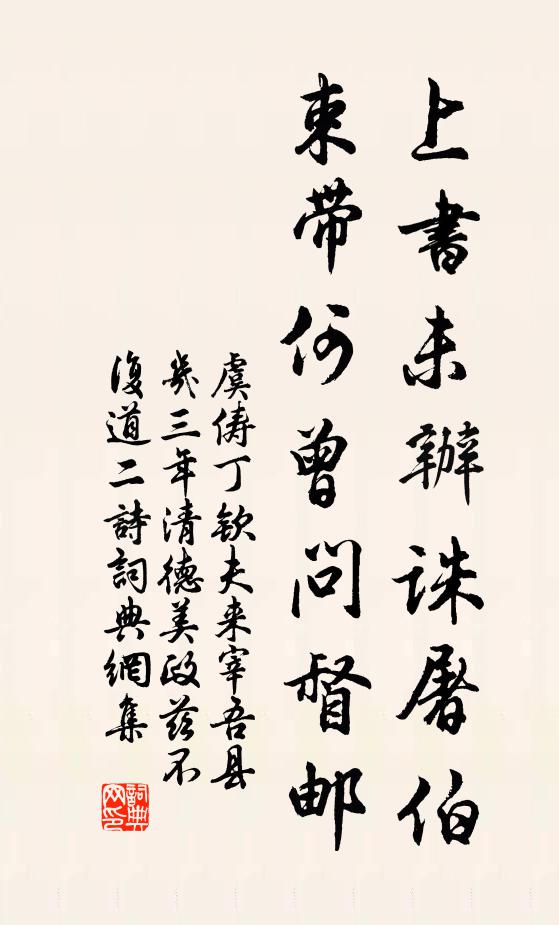 上書未辦誅屠伯
束帶何曾問督邮
虞俦丁欽夫来宰吾县
幾三年清德美政茲不
復道二詩詞典網集
詞典网印